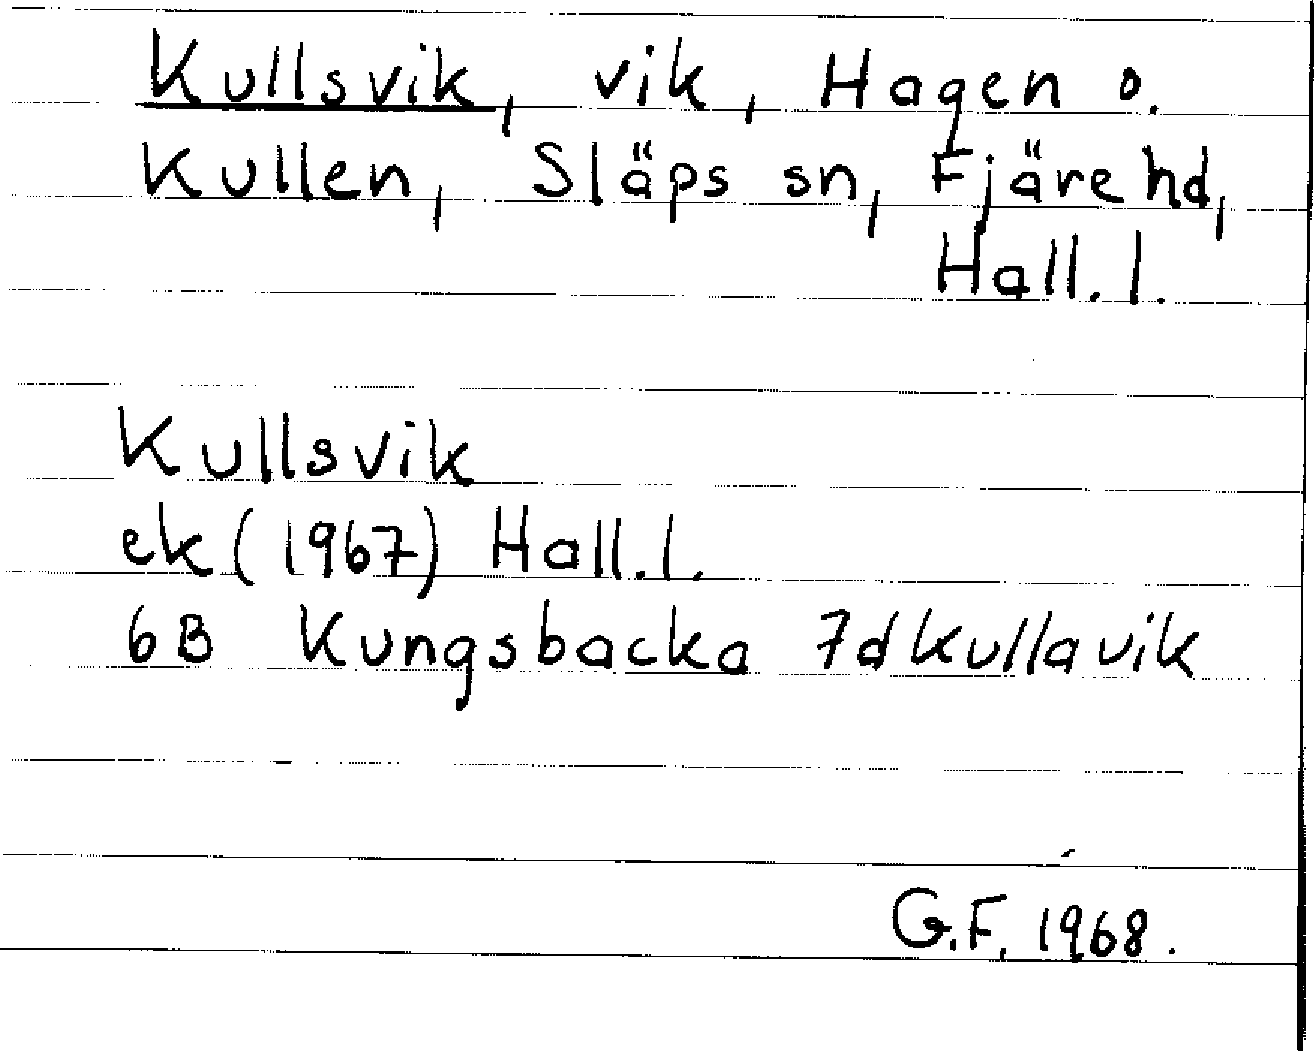 Kullsvik, vik, Hagen o.
Kullen, Släps sn, Fjäre hd,
Hall. l.
Kullsvik
ek (1967) Hall. l.
6B Kungsbacka 7d Kullavik
G.F. 1968.